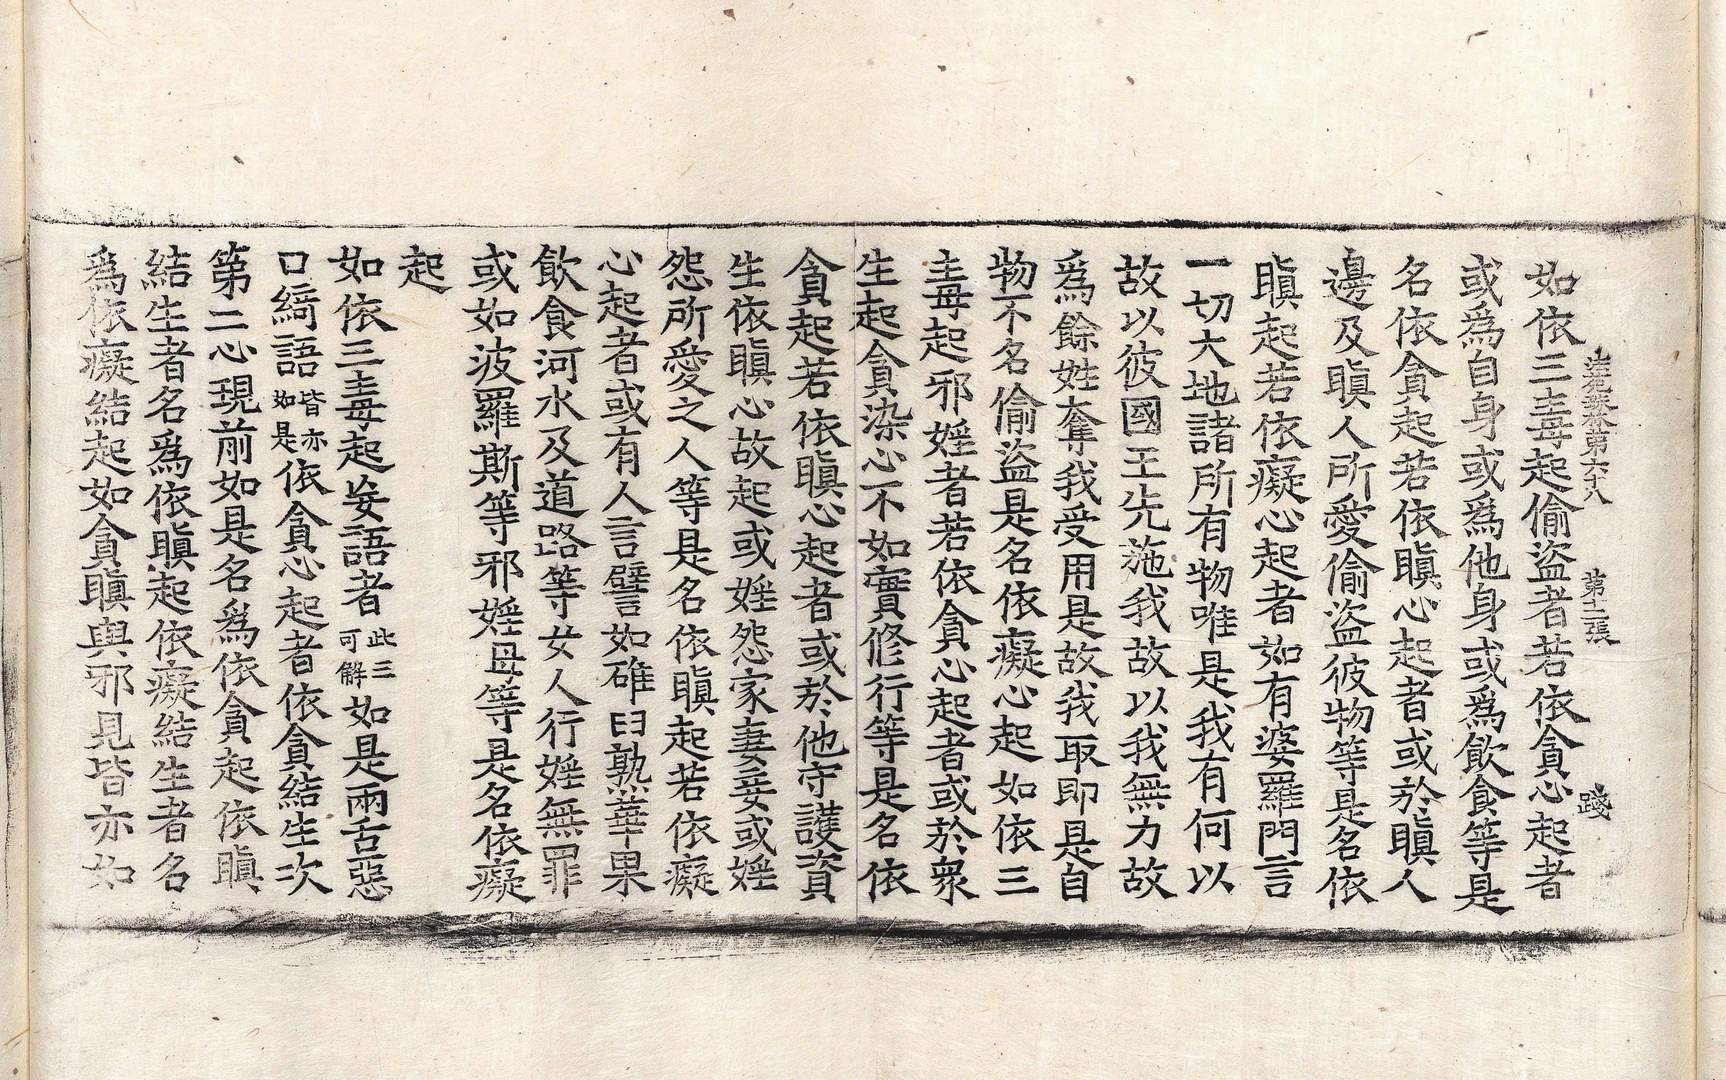 法苑珠林第六十八 第十二張 踐
如依三毒起偷盜者若依貪心起者
或爲自身或爲他身或爲飲食等是
名依貪起若依瞋心起者或於瞋人
邊及瞋人所愛偷盜彼物等是名依
瞋起若依癡心起者如有婆羅門言
一切大地諸所有物唯是我有何以
故以彼國王先施我故以我無力故
爲餘姓奪我受用是故我取即是自
物不名偷盜是名依癡心起如依三
毒起邪婬者若依貪心起者或於衆
生起貪染心不如實修行等是名依
貪起若依瞋心起者或於他守護資
生依瞋心故起或婬怨家妻妾或婬
怨所愛之人等是名依瞋起若依癡
心起者或有人言譬如碓臼熟華果
飲食河水及道路等女人行婬無罪
或如波羅斯等邪婬母等是名依癡
起
如依三毒起妄語者此三可解如是兩舌惡
口綺語皆亦如是依貪心起者依貪結生次
第二心現前如是名爲依貪起依瞋
結生者名爲依瞋起依癡結生者名
爲依癡結起如貪瞋與邪見皆亦如